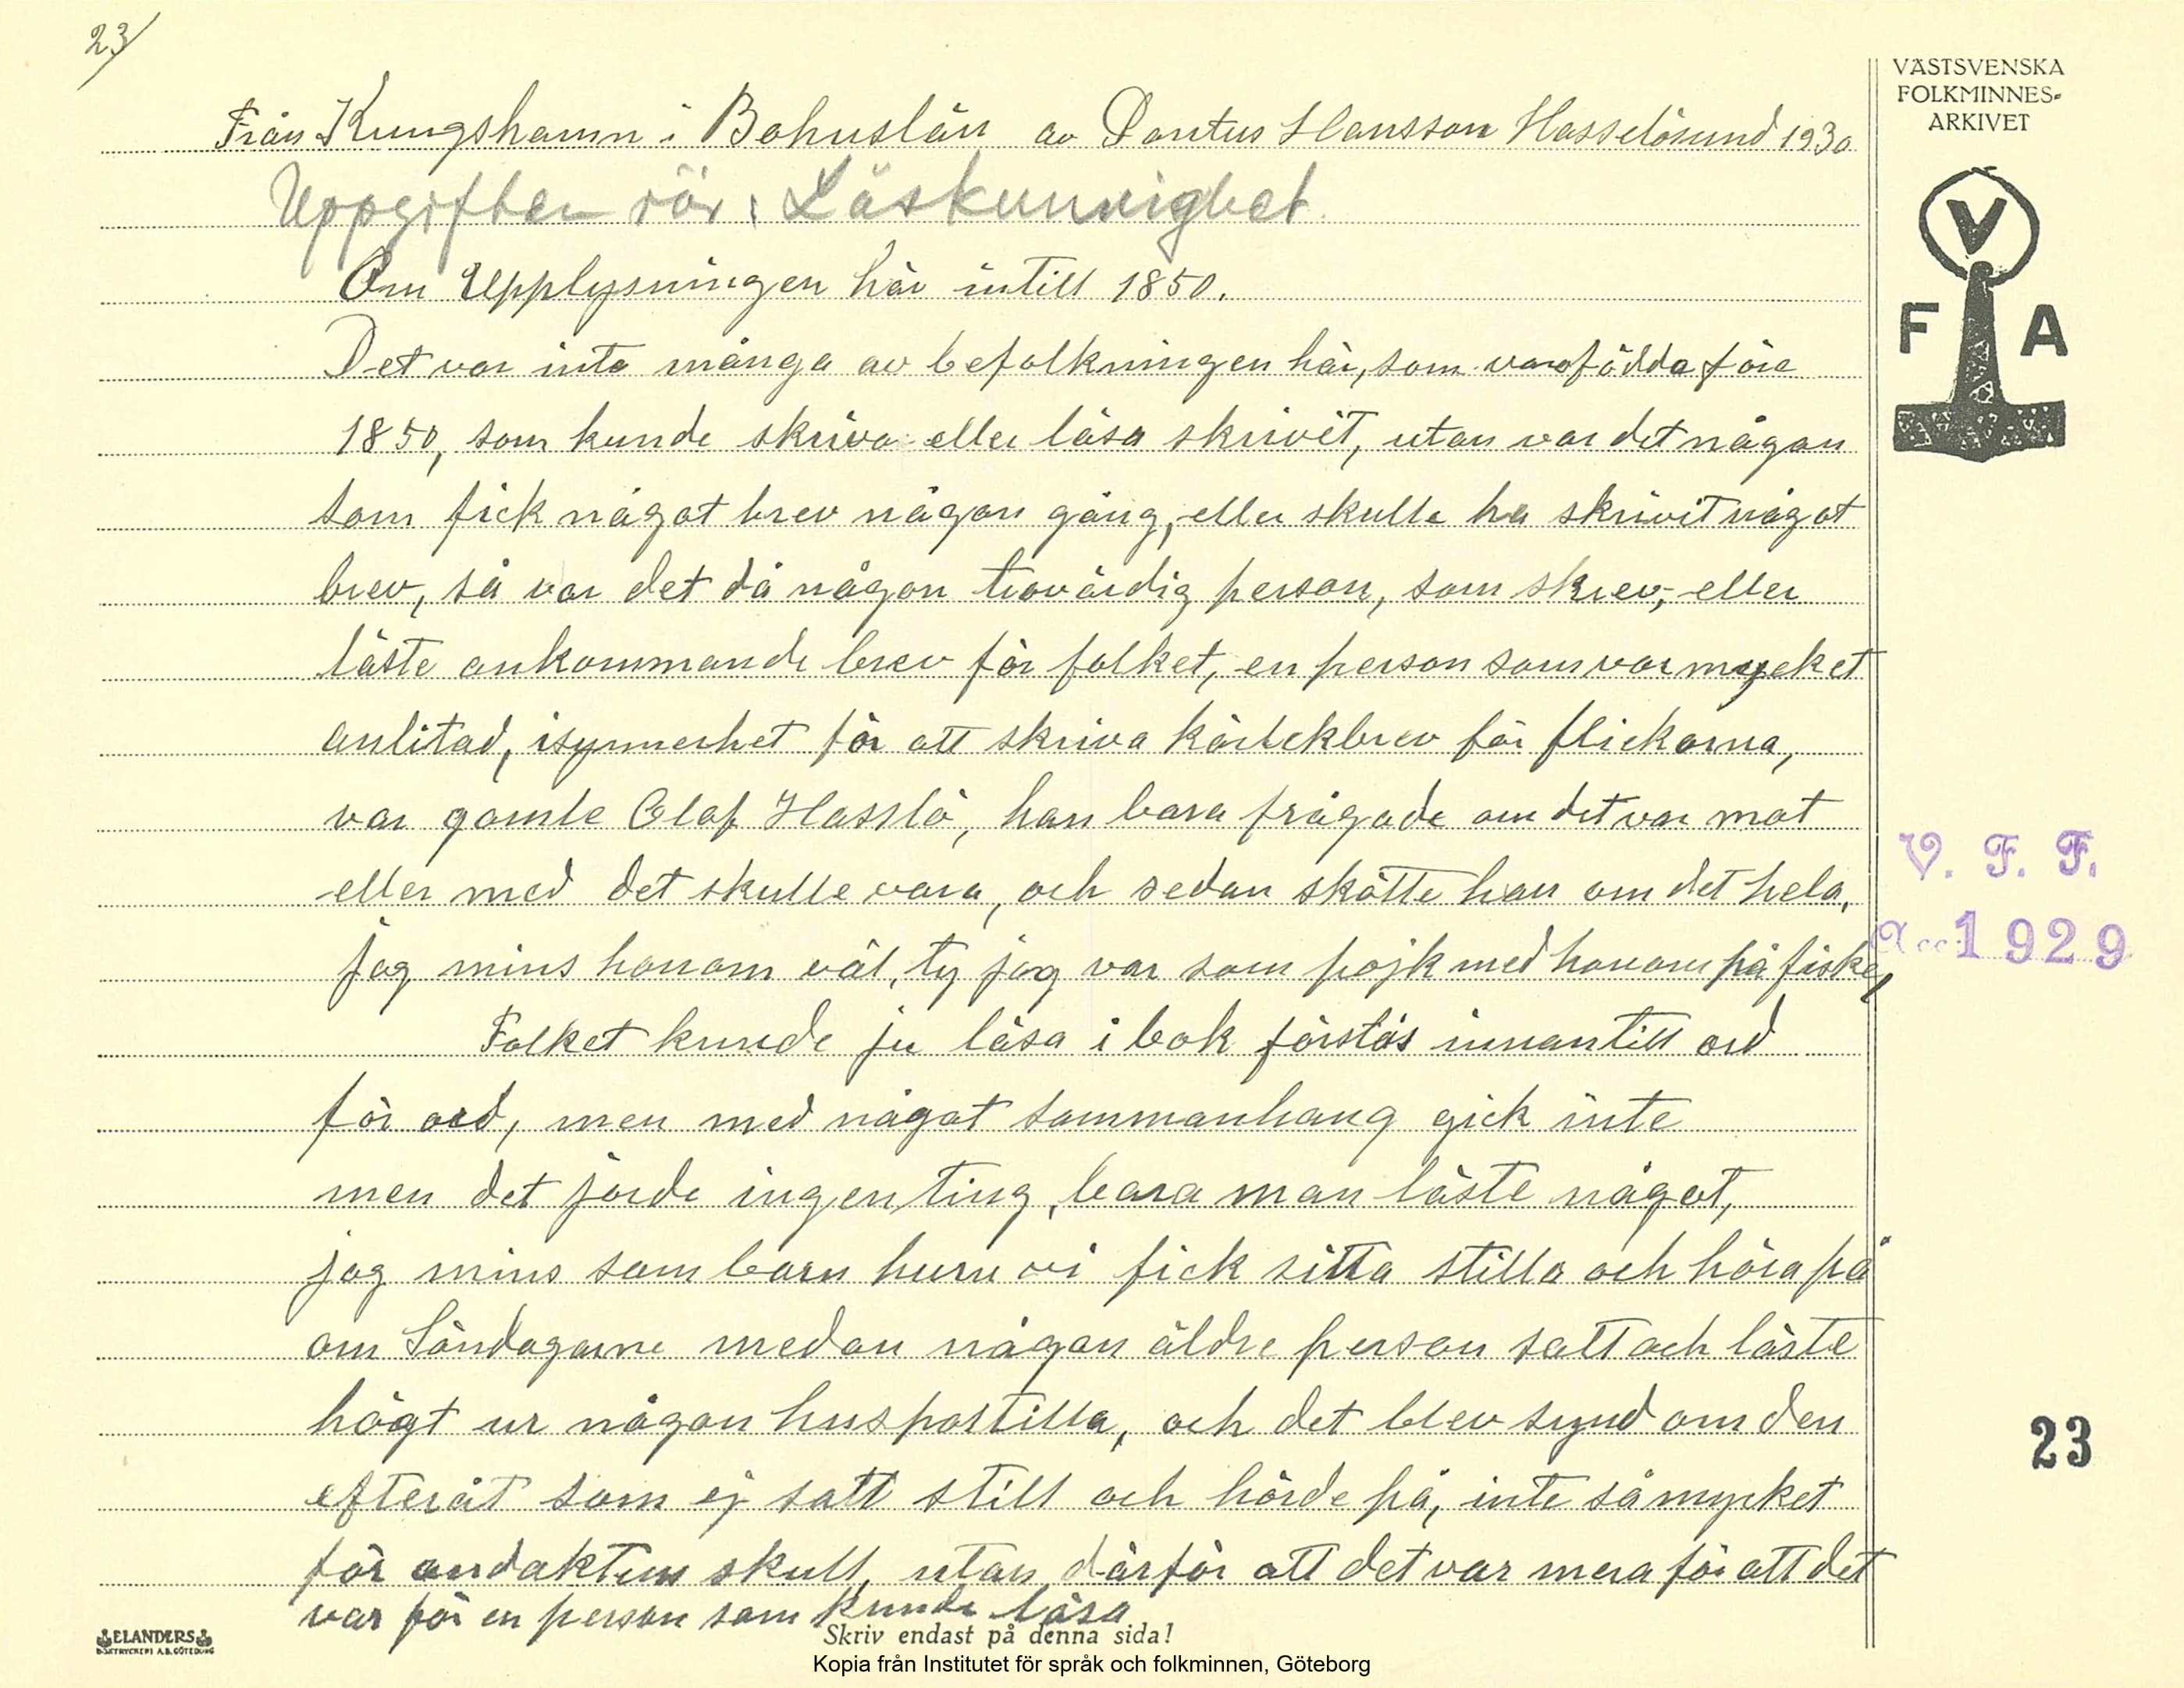 23/
VÄSTSVENSKA
FOLKMINNES-
ARKIVET
V
F A
Från Kungshamn i Bohuslän av Pontus Hansson Hasselösund 1930
Uppgiften rör: Läskunnighet.
Om Upplysningen här intill 1850.
Det var inte många av befolkningen här, som var födda före
1850, som kunde skriva eller läsa skrivit, utan var det någon
som fick något brev någon gång, eller skulle ha skrivit något
brev, så var det då någon trovärdig person, som skrev, eller
läste ankommande brev för folket, en person som var mycket
anlitad, isynnerhet för att skriva kärlekbrev för flickorna,
var gamle Olof Hasslö, han bara frågade om det var mot
eller med det skulle vara, och sedan skötte han om det hela,
jag mins honom väl, ty jag var som pojk med honom på fiske,
V. F. F.
Acc 1929
Folket kunde ju läsa i bok förstås innantill ord
för ord, men med något sammanhang gick inte
men det jorde ingen ting, bara man läste något,
jag mins som barn huru vi fick sitta stilla och höra på
om Söndagarne medan någon äldre person satt och läste
högt ur någon huspostilla, och det blev synd om den
23
efteråt som ej satt still och hörde på, inte så mycket
för andaktens skull, utan därför att det var mera för att det
var för en person som kunde läsa
ELANDERS
BOKTRYCKERI A.B. GÖTEBORG
Skriv endast på denna sida!
Kopia från Institutet för språk och folkminnen, Göteborg